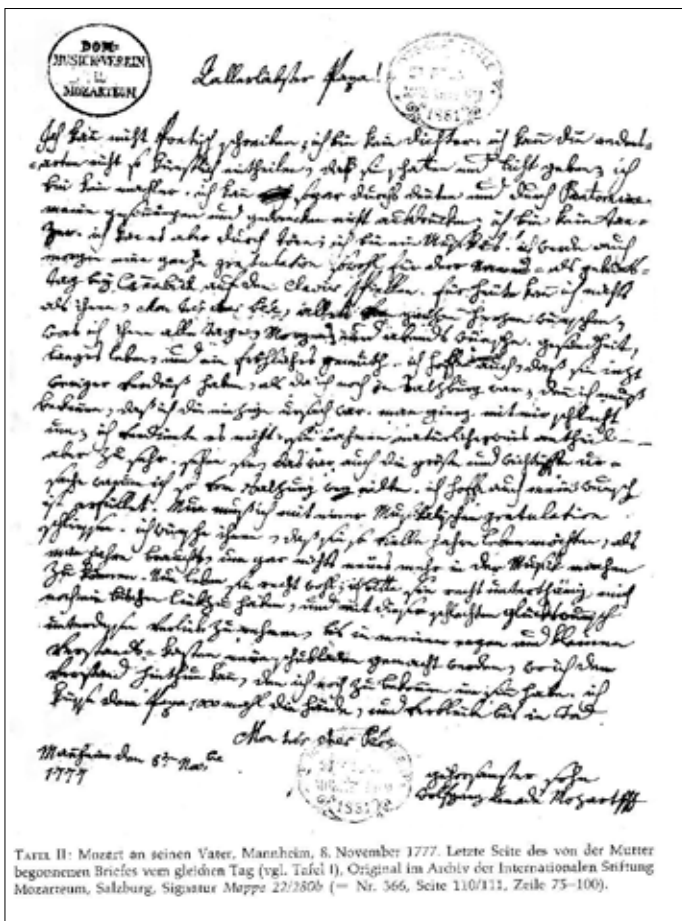 DOM-
MUSICK-VEREIN
U.
MOZARTEUM
1881
Allerliebster Papa!
Ich kan nicht Poetisch schreiben; ich bin kein dichter. ich kann die redens-
arten nicht so künstlich eintheilen, daß sie schatten und licht geben; ich
bin kein mahler. ich kan sogar durchs deüten und durch Pantomime
meine gesinnungen und gedancken nicht ausdrücken; ich bin kein tan-
zer. ich kan es aber durch töne; ich bin ein Musikus. ich werde auch
morgen eine ganze gratulation sowohl für dero Namens- als geburts-
tag bey Cannabich auf dem Clavier spiellen. für heüte kan ich nichts
als ihnen, Mon trés cher Pére, alles vom ganzen herzen wünschen,
was ich ihnen alle tage, Morgens und abends wünsche. gesundheit,
langes leben, und ein fröhliches gemüth. ich hoffe auch, daß sie iezt
weniger verdruß haben, als da ich noch in Salzburg war; denn ich muß
bekennen, daß ich die einzige ursach war. man gieng mit mir schlecht
um; ich verdiente es nicht. sie nahmen natürlicherweis antheil —
aber zu sehr. sehen sie, das war auch die gröste und wichtigste ur-
sache warum ich so von Salzburg weg eilte. ich hoffe auch mein wunsch
ist erfüllet. Nun muß ich mit einer Musikalischen gratulation
schliessen. ich wünsche ihnen, daß sie so vielle jahre leben möchten, als
man jahre braucht, um gar nichts neues mehr in der Musick machen
zu können. Nun leben sie recht wohl; ich bitte sie recht unterthänig mich
noch ein bischen lieb zu haben, und mit diesen schlechten glückwunsch
unterdessen verlieb zu nehmen, bis in meinem engen und kleinen
verstands-kasten neue schubladen gemacht werden, wo ich den
verstand hinthun kan, den ich noch zu bekommen im sinn habe. ich
küsse dem Papa 1000 mahl die hände, und verbleibe bis in Tod
Mon trés cher Pére
Mannheim den 8:ten Nov:bre
1777
gehorsamster sohn
Wolfgang Amadé Mozart
1881
TAFEL II: Mozart an seinen Vater, Mannheim, 8. November 1777. Letzte Seite des von der Mutter
begonnenen Briefes vom gleichen Tag (vgl. Tafel I). Original im Archiv der Internationalen Stiftung
Mozarteum, Salzburg, Signatur Mappe 22/280b (= Nr. 366, Seite 110/111, Zeile 75–100).